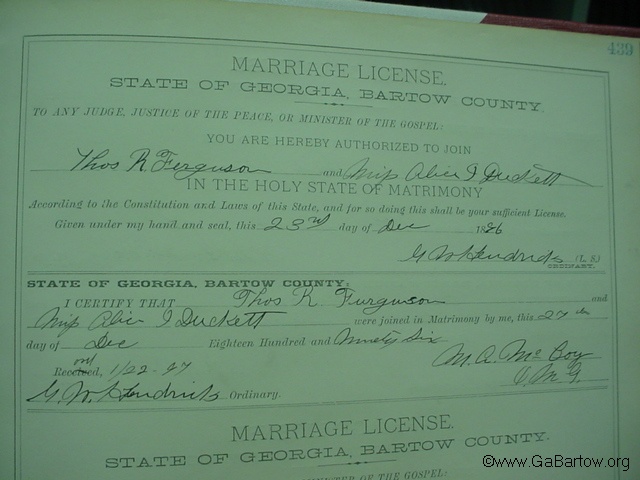 439
MARRIAGE LICENSE.
STATE OF GEORGIA, BARTOW COUNTY.
TO ANY JUDGE, JUSTICE OF THE PEACE, OR MINISTER OF THE GOSPEL:
YOU ARE HEREBY AUTHORIZED TO JOIN
Thos R Ferguson and Miss Alice I Duckett
IN THE HOLY STATE OF MATRIMONY
According to the Constitution and Laws of this State, and for so doing this shall be your sufficient License.
Given under my hand and seal, this 23rd day of Dec 1896
G W Hendricks (L. S.)
ORDINARY.
STATE OF GEORGIA, BARTOW COUNTY:
I CERTIFY THAT Thos R. Furguson and
Miss Alice I Duckett were joined in Matrimony by me, this 27th
day of Dec Eighteen Hundred and Ninety Six
Received, 1/22-97 M. A. McCoy
G. W. Hendricks Ordinary.
MARRIAGE LICENSE.
STATE OF GEORGIA, BARTOW COUNTY.
MINISTER OF THE GOSPEL:
©www.GaBartow.org